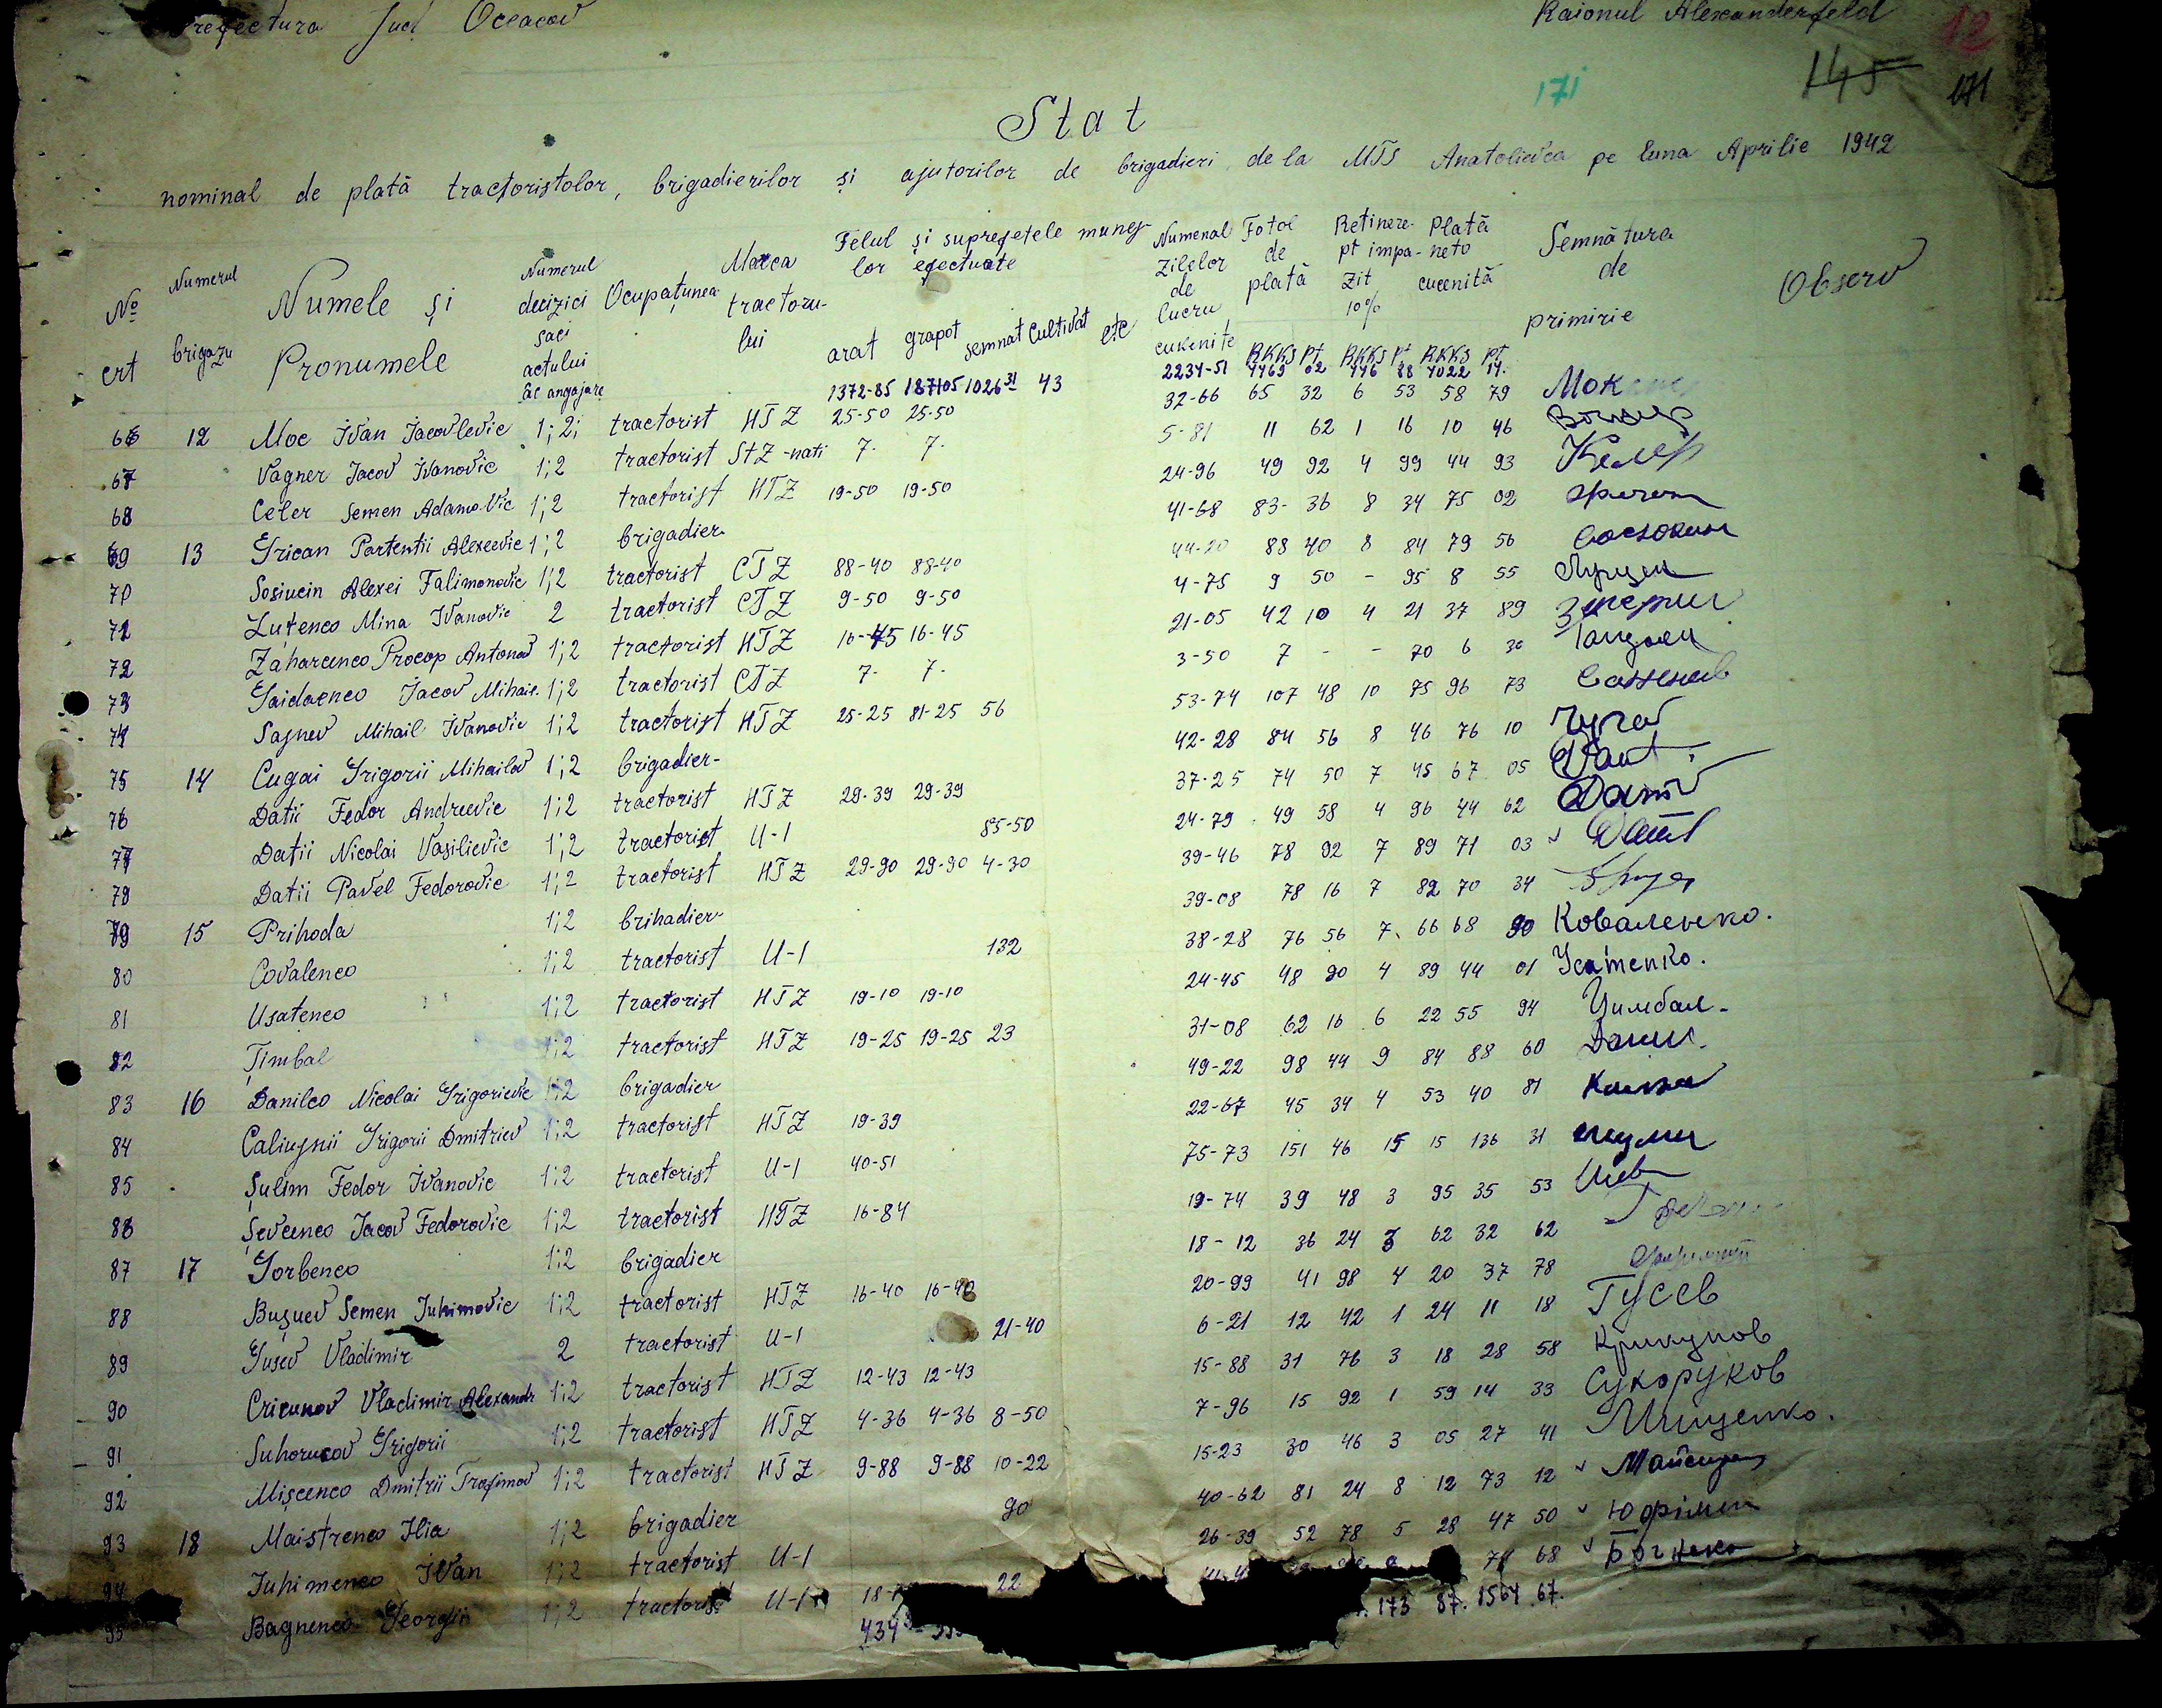 Prefectura Jud Oceacov Raionul Alexanderfeld
12
171 145 171
Stat
nominal de plată tractoristolor, brigadierilor și ajutorilor de brigadieri de la MTS Anatolievca pe luna Aprilie 1942
№ crt Numerul brigazu Numele și Pronumele Numerul decizici saci actului de angajare Ocupațunea Marca tractoru-lui Felul și suprefetele munej-lor efectuate arat grapot semnat cultivat etc Numeral zilelor de lucru cuvenite Total de plată Retinere pt impa-zit 10% Plată neto cuvenită Semnătura de primirie Observ
RKKS pt RKKS pt RKKS pt
1372-85 1871 05 1026 31 43 2234-51 4469 02 446 88 4022 14
66 12 Moc Ivan Jacovlevic 1; 2; tractorist HTZ 25-50 25-50 32-66 65 32 6 53 58 79
67 Vagner Jacov Ivanovic 1;2 tractorist StZ-nati 7- 7- 5-81 11 62 1 16 10 46
68 Celer Semen Adamovic 1;2 tractorist HTZ 19-50 19-50 24-96 49 92 4 99 44 93 Келер
69 13 Grican Partentii Alexeevic 1;2 brigadier 41-68 83- 36 8 34 75 02
70 Sosiucin Alexei Falimonovic 1;2 tractorist CTZ 88-40 88-40 44-20 88 40 8 84 79 56
71 Luțenco Mina Ivanovic 2 tractorist CTZ 9-50 9-50 4-75 9 50 - 95 8 55
72 Zaharcenco Procop Antonov 1;2 tractorist HTZ 16-45 16-45 21-05 42 10 4 21 37 89
73 Gaidaenco Jacov Mihaic. 1;2 tractorist CTZ 7- 7- 3-50 7 - - 70 6 30
74 Sajnev Mihail Ivanovic 1;2 tractorist HTZ 25-25 81-25 56 53-74 107 48 10 75 96 73
75 14 Cugai Grigorii Mihailov 1;2 brigadier- 42-28 84 56 8 46 76 10
76 Datii Fedor Andreevic 1;2 tractorist HTZ 29-39 29-39 37-25 74 50 7 45 67 05
77 Datii Nicolai Vasilievic 1;2 tractorist U-1 85-50 24-79 49 58 4 96 44 62
78 Datii Pavel Fedorovic 1;2 tractorist HTZ 29-90 29-90 4-30 39-46 78 92 7 89 71 03
79 15 Prihoda 1;2 brihadier- 39-08 78 16 7 82 70 34
80 Covalenco 1;2 tractorist U-1 132 38-28 76 56 7 66 68 90 Коваленко.
81 Usatenco 1;2 tractorist HTZ 19-10 19-10 24-45 48 90 4 89 44 01 Усатенко.
82 Țimbal 1;2 tractorist HTZ 19-25 19-25 23 31-08 62 16 6 22 55 94 Цимбал-
83 16 Danilco Nicolai Grigorievic 1;2 brigadier 49-22 98 44 9 84 88 60
84 Caliujnii Grigorii Dmitriev 1;2 tractorist HTZ 19-39 22-67 45 34 4 53 40 81
85 Șulim Fedor Ivanovic 1;2 tractorist U-1 40-51 75-73 151 46 15 15 136 31
86 Șevcenco Jacov Fedorovic 1;2 tractorist HTZ 16-84 19-74 39 48 3 95 35 53
87 17 Gorbenco 1;2 brigadier 18-12 36 24 3 62 32 62
88 Bușuev Semen Juhimovic 1;2 tractorist HTZ 16-40 16-40 20-99 41 98 4 20 37 78
89 Gusev Vladimir 2 tractorist U-1 21-40 6-21 12 42 1 24 11 18 Гусев
90 Cricunov Vladimir Alexandr 1;2 tractorist HTZ 12-43 12-43 15-88 31 76 3 18 28 58 Крикунов
91 Suhorucov Grigorii 1;2 tractorist HTZ 4-36 4-36 8-50 7-96 15 92 1 59 14 33 Сукоруков
92 Mișcenco Dmitrii Trofimov 1;2 tractorist HTZ 9-88 9-88 10-22 15-23 30 46 3 05 27 41 Мищенко.
93 18 Maistrenco Ilia 1;2 brigadier 40-62 81 24 8 12 73 12
94 Juhimenco Ivan 1;2 tractorist U-1 90 26-39 52 78 5 28 47 50
95 Bagnenco Georgii 1;2 tractorist U-1 22 68
173 87. 1564 67.